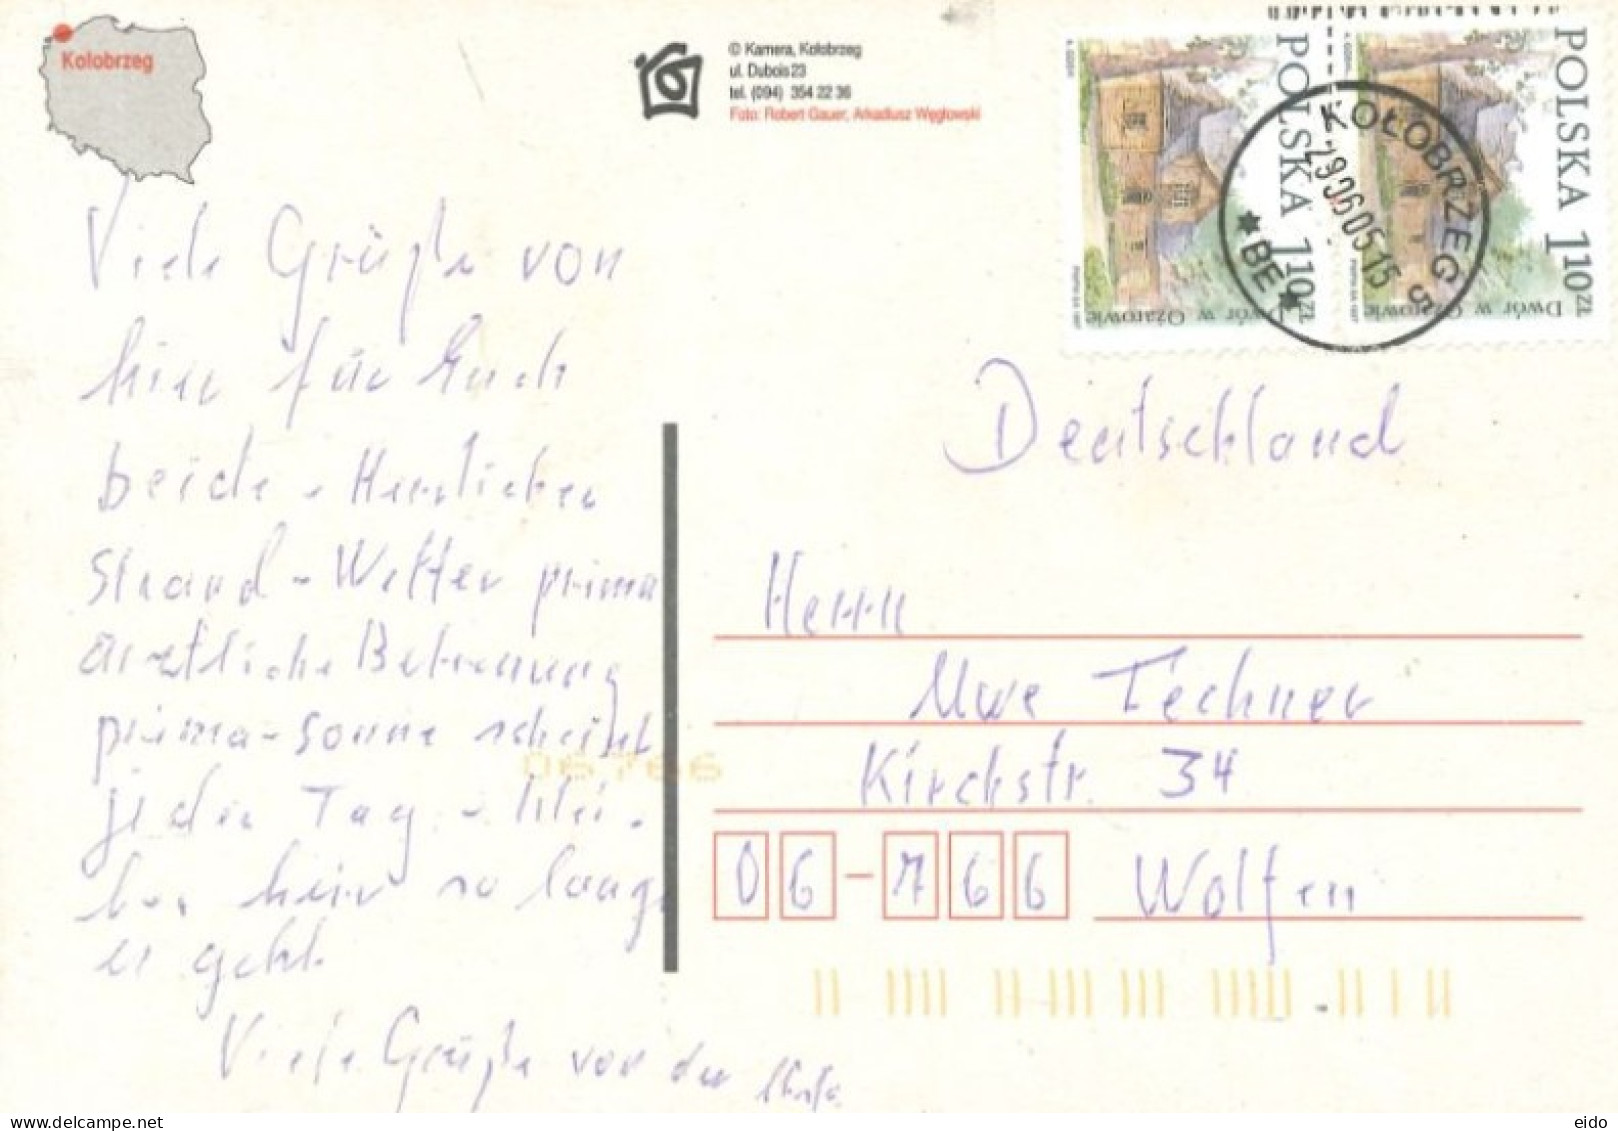 Kołobrzeg
© Kamera, Kołobrzeg
ul. Dubois 23
tel. (094) 354 22 36
Foto: Robert Gauer, Arkadiusz Węgłowski
POLSKA 110 ZŁ
Dwór w Ożarowie
POLSKA 110 ZŁ
Dwór w Ożarowie
KOŁOBRZEG 5
BE
Viele Grüße von
hier für Euch
beide - Herrlicher
Strand - Wetter prima
ärztliche Betreuung
prima - Sonne scheint
jeden Tag -
hier so lange
es geht.
Viele Grüße von der
Deutschland
Herrn
Uwe Techner
Kirchstr. 34
06-766 Wolfen
06766
eido
www.delcampe.net